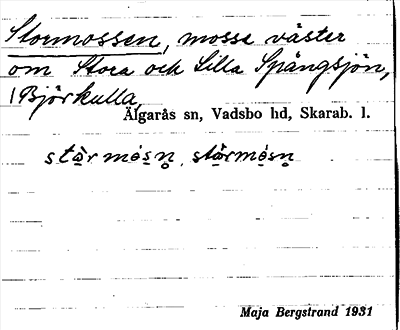 Stormossen, mosse väster
om Stora och Lilla Spångsjön,
Björkulla,
Älgarås sn, Vadsbo hd, Skarab. l.
Maja Bergstrand 1931